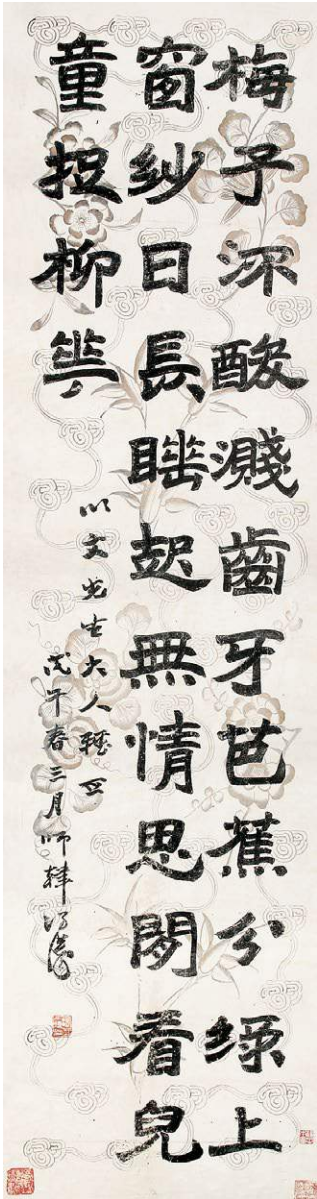 梅子流酸濺齒牙芭蕉分綠上
窗紗日長睡起無情思閑看兒
童捉柳華
以文先生大人
戊午春三月師韓